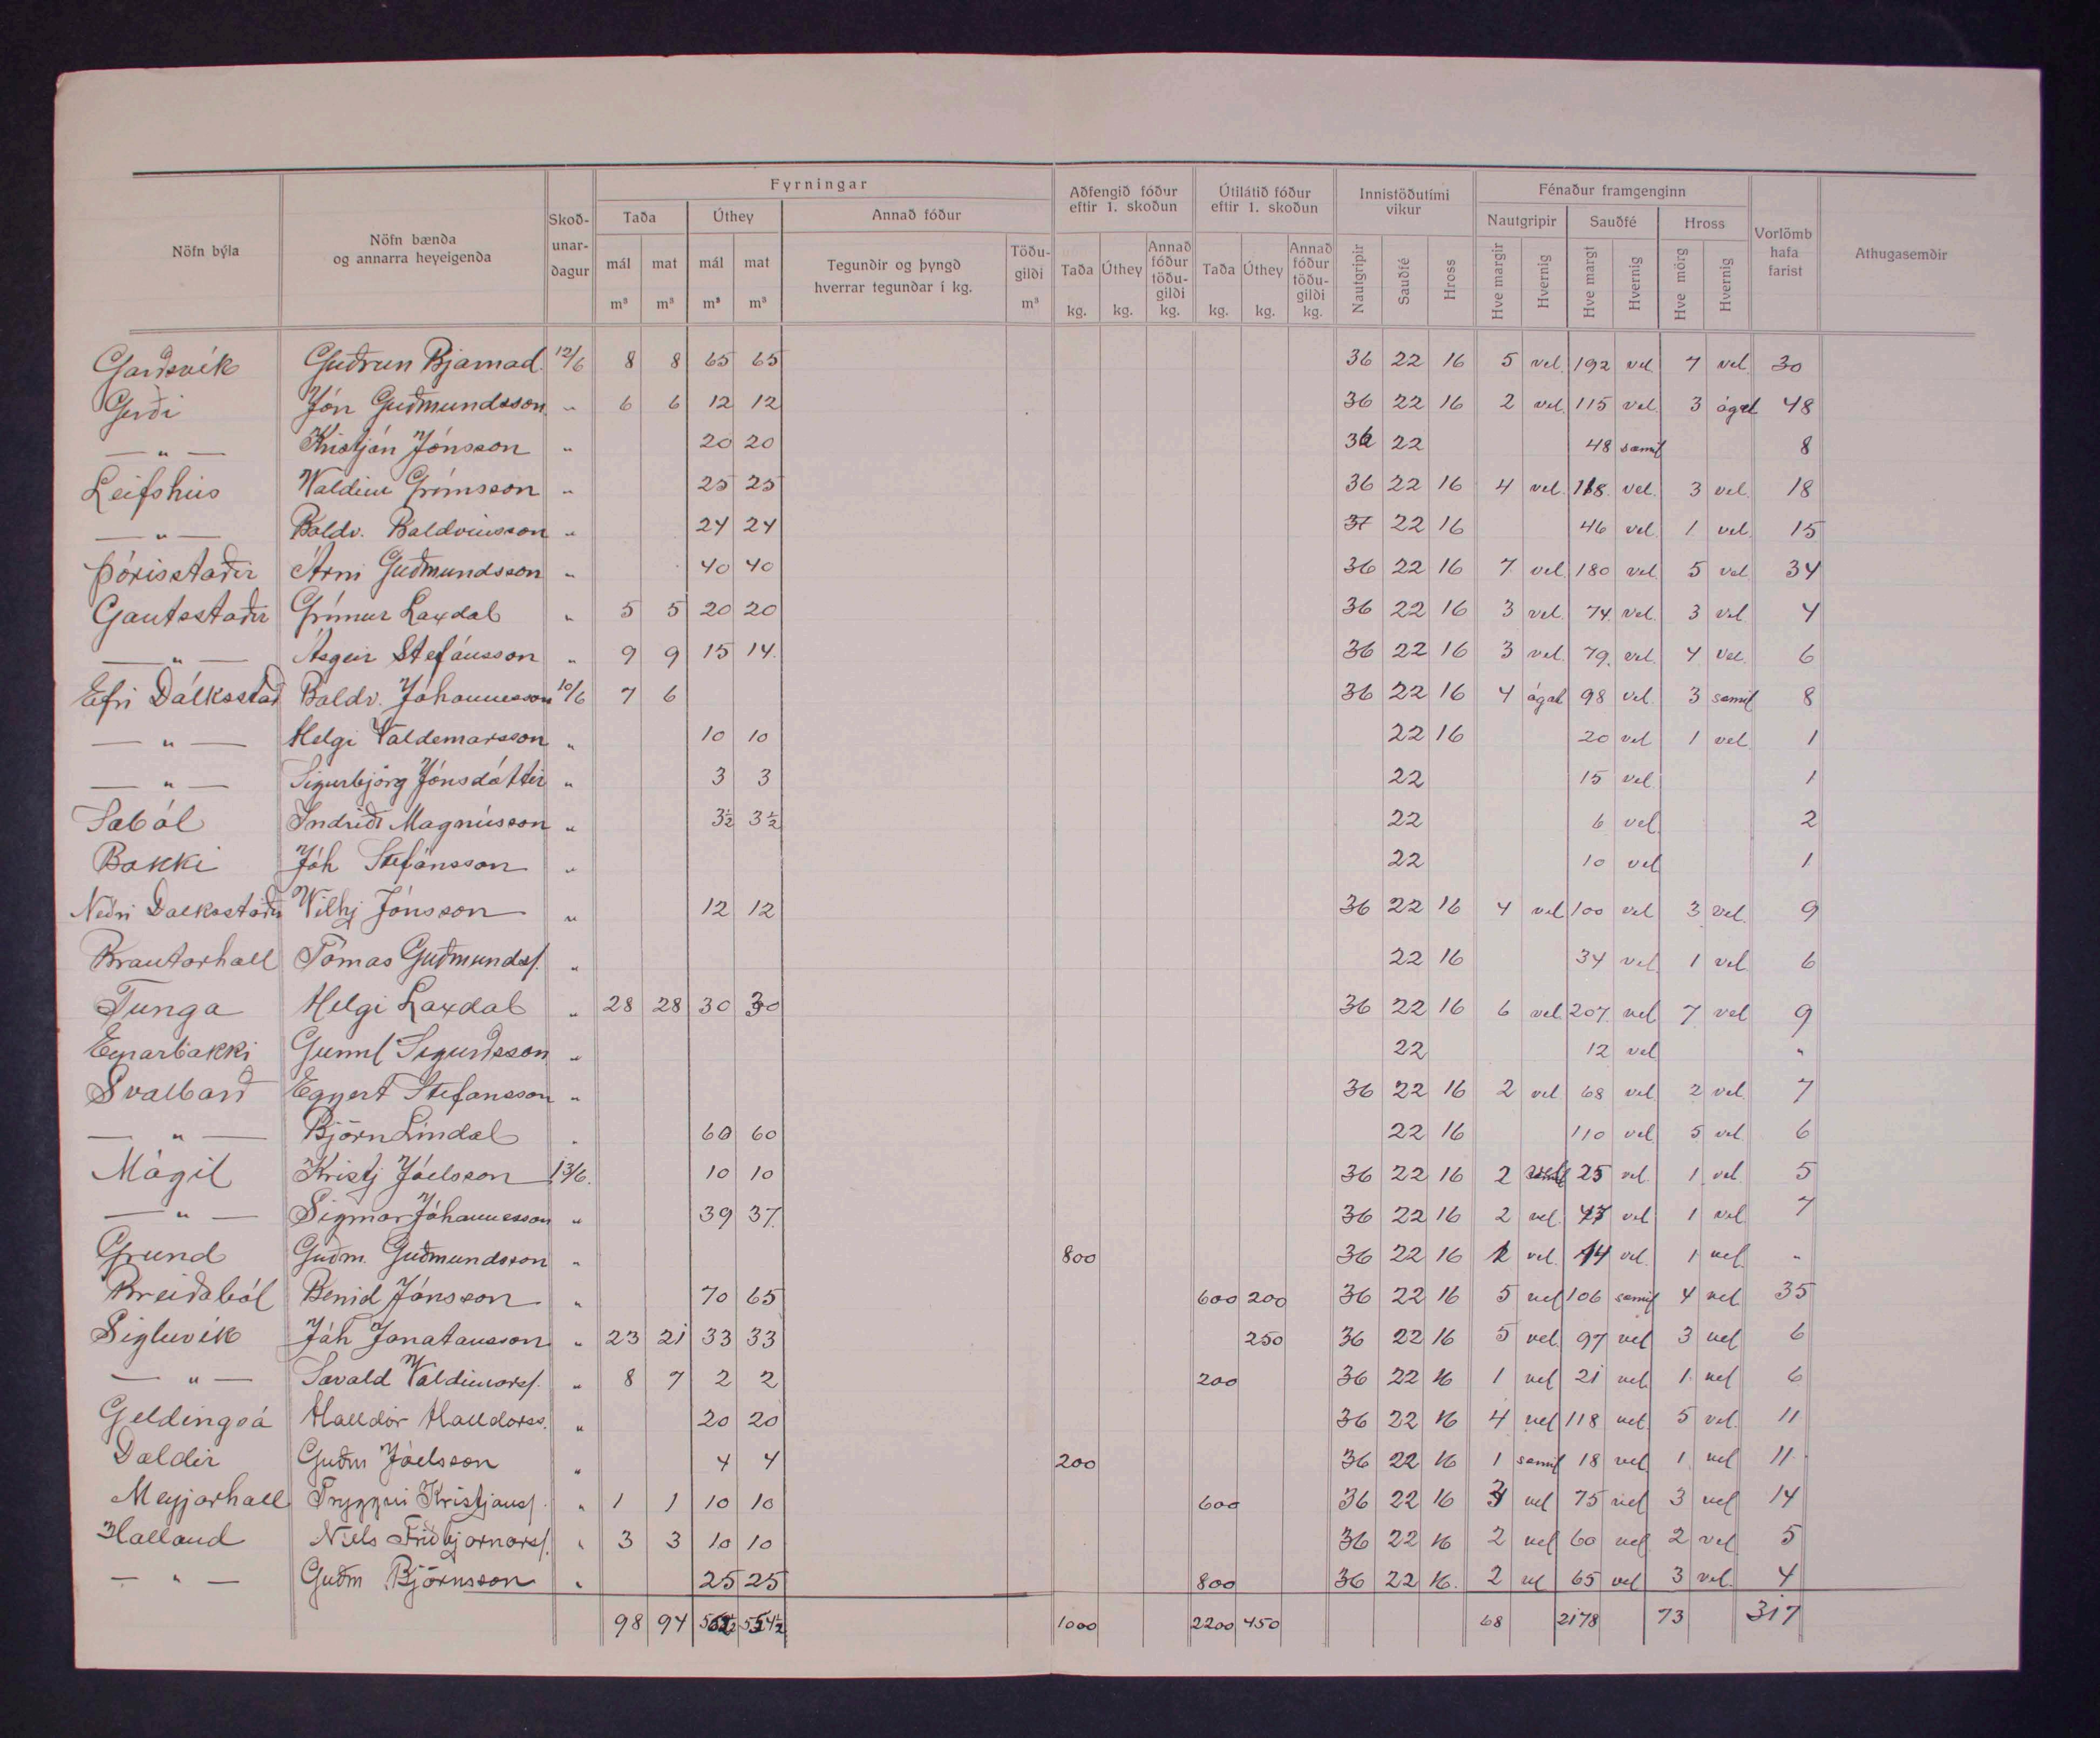 Fyrningar
Aðfengið fóður eftir 1. skoðun
Útilátið fóður eftir 1. skoðun
Innistöðutími vikur
Fénaður framgenginn
Nöfn býla
Nöfn bænda og annarra heyeigenda
Skoð-unar-dagur
Taða
Úthey
Annað fóður
Nautgripir
Sauðfé
Hross
Vorlömb hafa farist
Athugasemdir
mál m³
mat m³
mál m³
mat m³
Tegundir og þyngd hverrar tegundar í kg.
Töðu-gildi m³
Taða kg.
Úthey kg.
Annað fóður töðu-gildi kg.
Taða kg.
Úthey kg.
Annað fóður töðu-gildi kg.
Nautgripir
Sauðfé
Hross
Hve margir
Hvernig
Hve margt
Hvernig
Hve mörg
Hvernig
Garðsvík Guðrun Bjarnad. 12/6 8 8 65 65 36 22 16 5 vel 192 vel 7 vel 30
Gerði Jón Guðmundsson „ 6 6 12 12 36 22 16 2 vel 115 vel 3 ágæt 48
— „ — Kristján Jónsson „ 20 20 36 22 48 samil 8
Leifshús Valdim Grímsson „ 25 25 36 22 16 4 vel 118 vel 3 vel 18
— „ — Baldv. Baldvinsson „ 24 24 37 22 16 46 vel 1 vel 15
Þórisstaðir Árni Guðmundsson „ 40 40 36 22 16 7 vel 180 vel 5 vel 34
Gautsstaðir Grímur Laxdal „ 5 5 20 20 36 22 16 3 vel 74 vel 3 vel 4
— „ — Ásgeir Stefánsson „ 9 9 15 14 36 22 16 3 vel 79 vel 4 vel 6
Efri Dálksstað Baldv. Jóhannesson 10/6 7 6 36 22 16 4 ágæt 98 vel 3 samil 8
— „ — Helgi Valdemarsson „ 10 10 22 16 20 vel 1 vel 1
— „ — Sigurbjörg Jónsdóttir „ 3 3 22 15 vel 1
Sæból Indriði Magnússon „ 3½ 3½ 22 6 vel 2
Bakki Jóh Stefánsson „ 22 10 vel 1
Neðri Dalksstaðir Vilhj Jónsson „ 12 12 36 22 16 4 vel 100 vel 3 vel 9
Brautarholl Tómas Guðmundss. „ 22 16 34 vel 1 vel 6
Tunga Helgi Laxdal „ 28 28 30 30 36 22 16 6 vel 207 vel 7 vel 9
Eyrarbakki Gunnl Sigurðsson „ 22 12 vel „
Svalbarð Eggert Stefansson „ 36 22 16 2 vel 68 vel 2 vel 7
— „ — Björn Líndal „ 60 60 22 16 110 vel 5 vel 6
Mógil Kristj Jóelsson 13/6. 10 10 36 22 16 2 25 vel 1 vel 5
— „ — Sigmar Jóhannesson „ 39 37 36 22 16 2 vel 47 vel 1 vel 7
Grund Guðm. Guðmundsson „ 800 36 22 16 1 vel 14 vel 1 vel „
Breiðaból Benid Jónsson „ 70 65 600 200 36 22 16 5 vel 106 samil 4 vel 35
Sigluvík Jóh Jonatansson „ 23 21 33 33 250 36 22 16 5 vel 97 vel 3 vel 6
— „ — Sævald Valdimarss. „ 8 7 2 2 200 36 22 16 1 vel 21 vel 1 vel 6
Geldingsá Halldór Halldorss. „ 20 20 36 22 16 4 vel 118 vel 5 vel 11
Daldir Guðm Jóelsson „ 4 4 200 36 22 16 1 samil 18 vel 1 vel 11
Meyjarholl Tryggvi Kristjanss. „ 1 1 10 10 600 36 22 16 3 vel 75 vel 3 vel 14
Halland Níels Friðbjarnars. „ 3 3 10 10 36 22 16 2 vel 60 vel 2 vel 5
— „ — Guðm Björnsson „ 25 25 800 36 22 16. 2 vel 65 vel 3 vel 4
98 94 554½ 1000 2200 450 68 2178 73 317